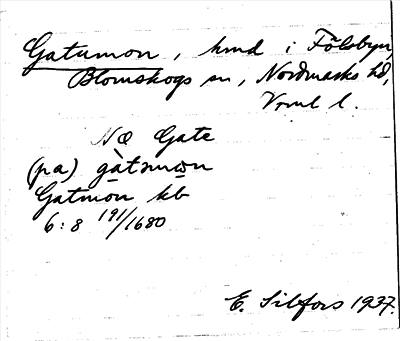 Gatumon, hmd i Fölsbyn,
Blomskogs sn, Nordmarks hd,
Vrml l.
NÆ Gate
(pa) gàtmon
Gatmon kb
6:8 191/1680
E. Silfors 1937.